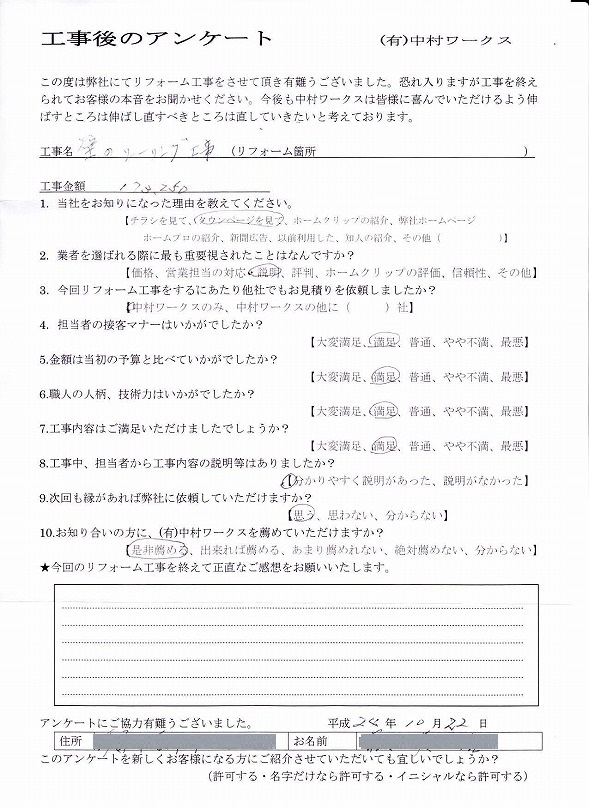 工事後のアンケート　(有)中村ワークス
この度は弊社にてリフォーム工事をさせて頂き有難うございました。恐れ入りますが工事を終え
られてお客様の本音をお聞かせください。今後も中村ワークスは皆様に喜んでいただけるよう伸
ばすところは伸ばし直すべきところは直していきたいと考えております。
工事名　壁のシーリング工事　(リフォーム箇所　)
工事金額
1. 当社をお知りになった理由を教えてください。
【チラシを見て、タウンページを見て、ホームクリップの紹介、弊社ホームページ
ホームプロの紹介、新聞広告、以前利用した、知人の紹介、その他（　）】
2. 業者を選ばれる際に最も重要視されたことはなんですか？
【価格、営業担当の対応・説明、評判、ホームクリップの評価、信頼性、その他】
3. 今回リフォーム工事をするにあたり他社でもお見積りを依頼しましたか？
【中村ワークスのみ、中村ワークスの他に（　）社】
4. 担当者の接客マナーはいかがでしたか？
【大変満足、満足、普通、やや不満、最悪】
5.金額は当初の予算と比べていかがでしたか？
【大変満足、満足、普通、やや不満、最悪】
6.職人の人柄、技術力はいかがでしたか？
【大変満足、満足、普通、やや不満、最悪】
7.工事内容はご満足いただけましたでしょうか？
【大変満足、満足、普通、やや不満、最悪】
8.工事中、担当者から工事内容の説明等はありましたか？
【分かりやすく説明があった、説明がなかった】
9.次回も縁があれば弊社に依頼していただけますか？
【思う、思わない、分からない】
10.お知り合いの方に、(有)中村ワークスを薦めていただけますか？
【是非薦める、出来れば薦める、あまり薦めれない、絶対薦めない、分からない】
★今回のリフォーム工事を終えて正直なご感想をお願いいたします。
アンケートにご協力有難うございました。　平成24年10月22日
住所　お名前
このアンケートを新しくお客様になる方にご紹介させていただいても宜しいでしょうか？
（許可する・名字だけなら許可する・イニシャルなら許可する）